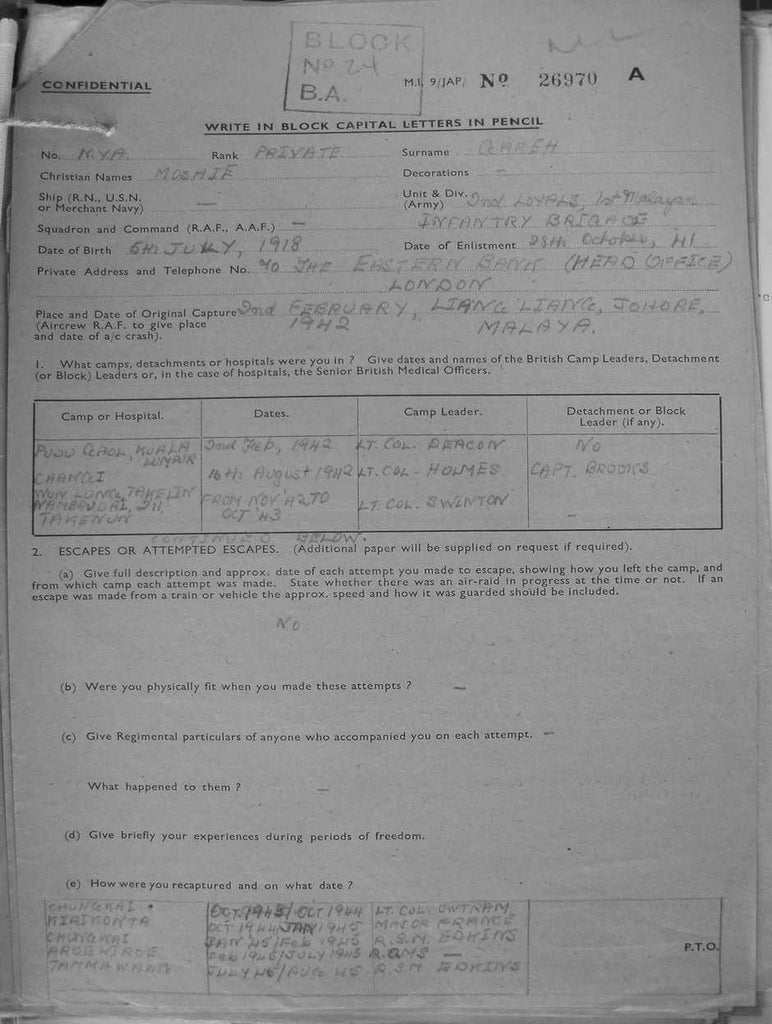 BLOCK
Nº 24
B.A.
CONFIDENTIAL
M.I. 9/JAP/ Nº 26970 A
WRITE IN BLOCK CAPITAL LETTERS IN PENCIL
No. N.Y.A. Rank PRIVATE Surname GAREH
Christian Names MOSHIE Decorations –
Ship (R.N., U.S.N. or Merchant Navy) — Unit & Div. (Army) 2nd LOYALS, 1st Malayan
Squadron and Command (R.A.F., A.A.F.) — INFANTRY BRIGADE
Date of Birth 5th JULY, 1918 Date of Enlistment 28th October, 41
Private Address and Telephone No. c/o THE EASTERN BANK (HEAD OFFICE)
LONDON
Place and Date of Original Capture 2nd FEBRUARY, LIANG LIANG, JOHORE,
(Aircrew R.A.F. to give place 1942 MALAYA.
and date of a/c crash).
1. What camps, detachments or hospitals were you in ? Give dates and names of the British Camp Leaders, Detachment
(or Block) Leaders or, in the case of hospitals, the Senior British Medical Officers.
Camp or Hospital. Dates. Camp Leader. Detachment or Block Leader (if any).
PUDU GAOL, KUALA LUMPUR 2nd Feb, 1942 LT. COL. DEACON NO
CHANGI 16th August 1942 LT. COL. HOLMES CAPT. BROOKS
WUN LUNG, TAKELIN FROM NOV '42, TO LT. COL. SWINTON –
OCT '43
TAKENUN
CONTINUED BELOW.
2. ESCAPES OR ATTEMPTED ESCAPES. (Additional paper will be supplied on request if required).
(a) Give full description and approx. date of each attempt you made to escape, showing how you left the camp, and
from which camp each attempt was made. State whether there was an air-raid in progress at the time or not. If an
escape was made from a train or vehicle the approx. speed and how it was guarded should be included.
NO
(b) Were you physically fit when you made these attempts ? —
(c) Give Regimental particulars of anyone who accompanied you on each attempt. —
What happened to them ? —
(d) Give briefly your experiences during periods of freedom.
(e) How were you recaptured and on what date ?
CHUNGKAI OCT 1943/OCT 1944 LT. COL. OWTRAM
OCT 1944/JAN 1945 MAJOR FRANCE
CHUNGKAI JAN '45/Feb 1945 R.S.M. EDKINS
Feb 1945/JULY 1945 R.QMS —
TAMMAWANG JULY 45/AUG 45 R.S.M EDKINS
P.T.O.